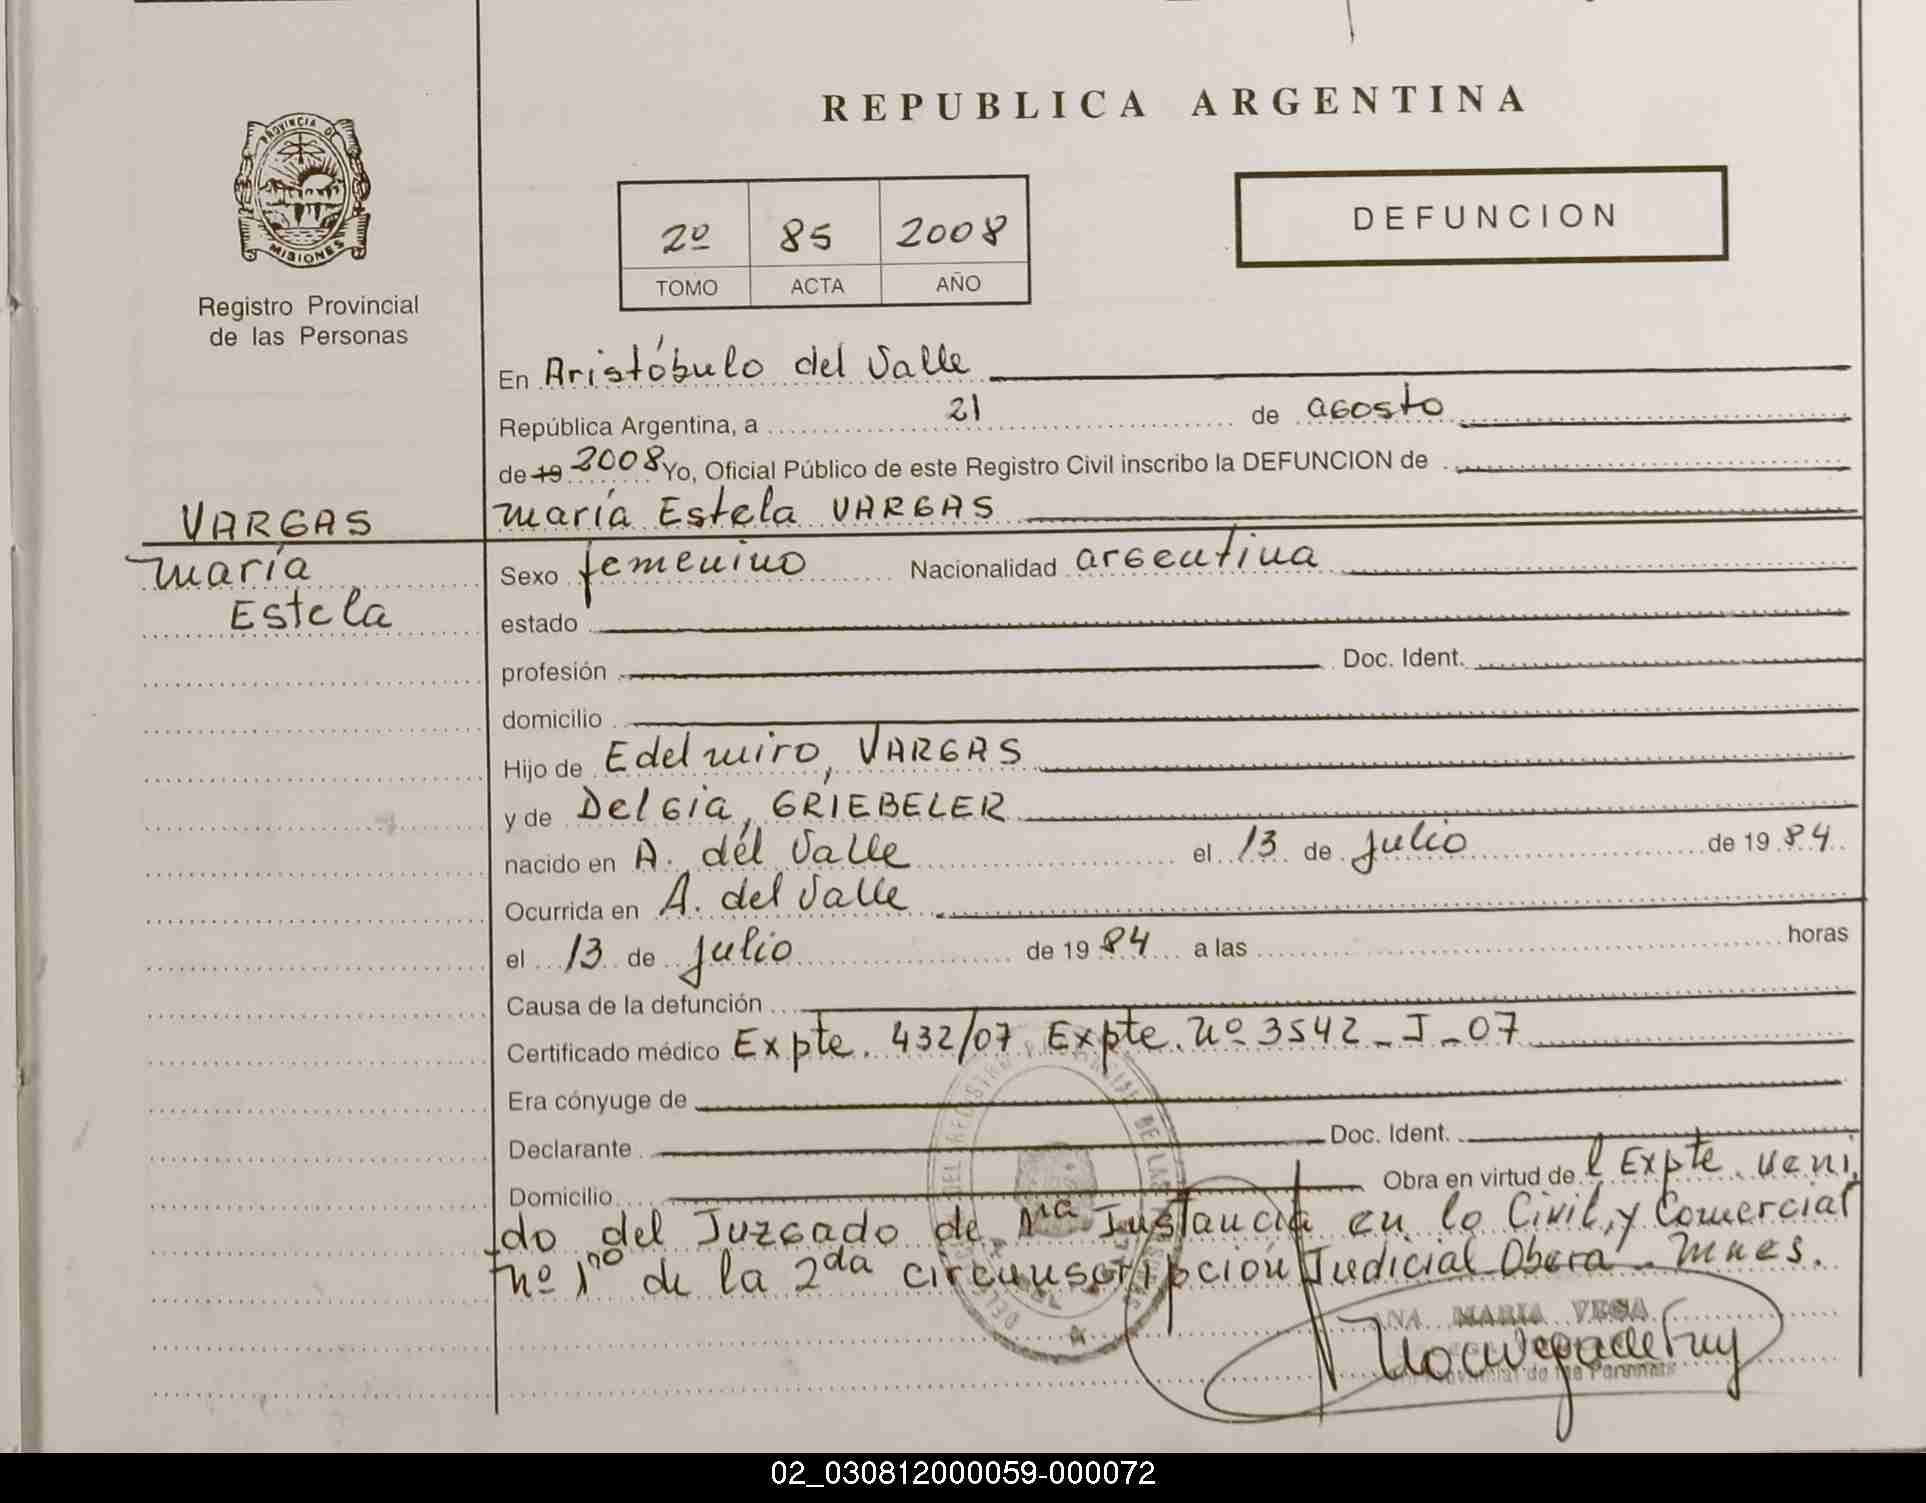 REPUBLICA ARGENTINA
PROVINCIA DE
MISIONES
Registro Provincial
de las Personas
2º 85 2008
TOMO ACTA AÑO
DEFUNCION
En Aristóbulo del Valle
República Argentina, a 21 de agosto
de 19 2008 Yo, Oficial Público de este Registro Civil inscribo la DEFUNCION de
VARGAS
María
Estela
María Estela VARGAS
Sexo femenino Nacionalidad argentina
estado
profesión Doc. Ident.
domicilio
Hijo de Edelmiro, VARGAS
y de Delgia, GRIEBELER
nacido en A. del Valle el 13 de julio de 19 84
Ocurrida en A. del Valle
el 13 de julio de 19 84 a las horas
Causa de la defunción
Certificado médico Expte. 432/07 Expte. Nº 3542-J-07
Era cónyuge de
Declarante Doc. Ident.
Domicilio Obra en virtud del Expte. veni
do del Juzgado de 1ra Instancia en lo Civil, y Comercial
Nº 1ro de la 2da circunscripción Judicial Oberá - Mnes.
ANA MARIA VEGA
Provincial de las Personas
02_030812000059-000072